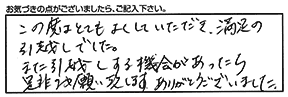 お気づきの点がございましたら、ご記入下さい。
この度はとてもよくしていただき、満足の
引越しでした。
また引越しする機会があったら
是非お願い致します。ありがとうございました。